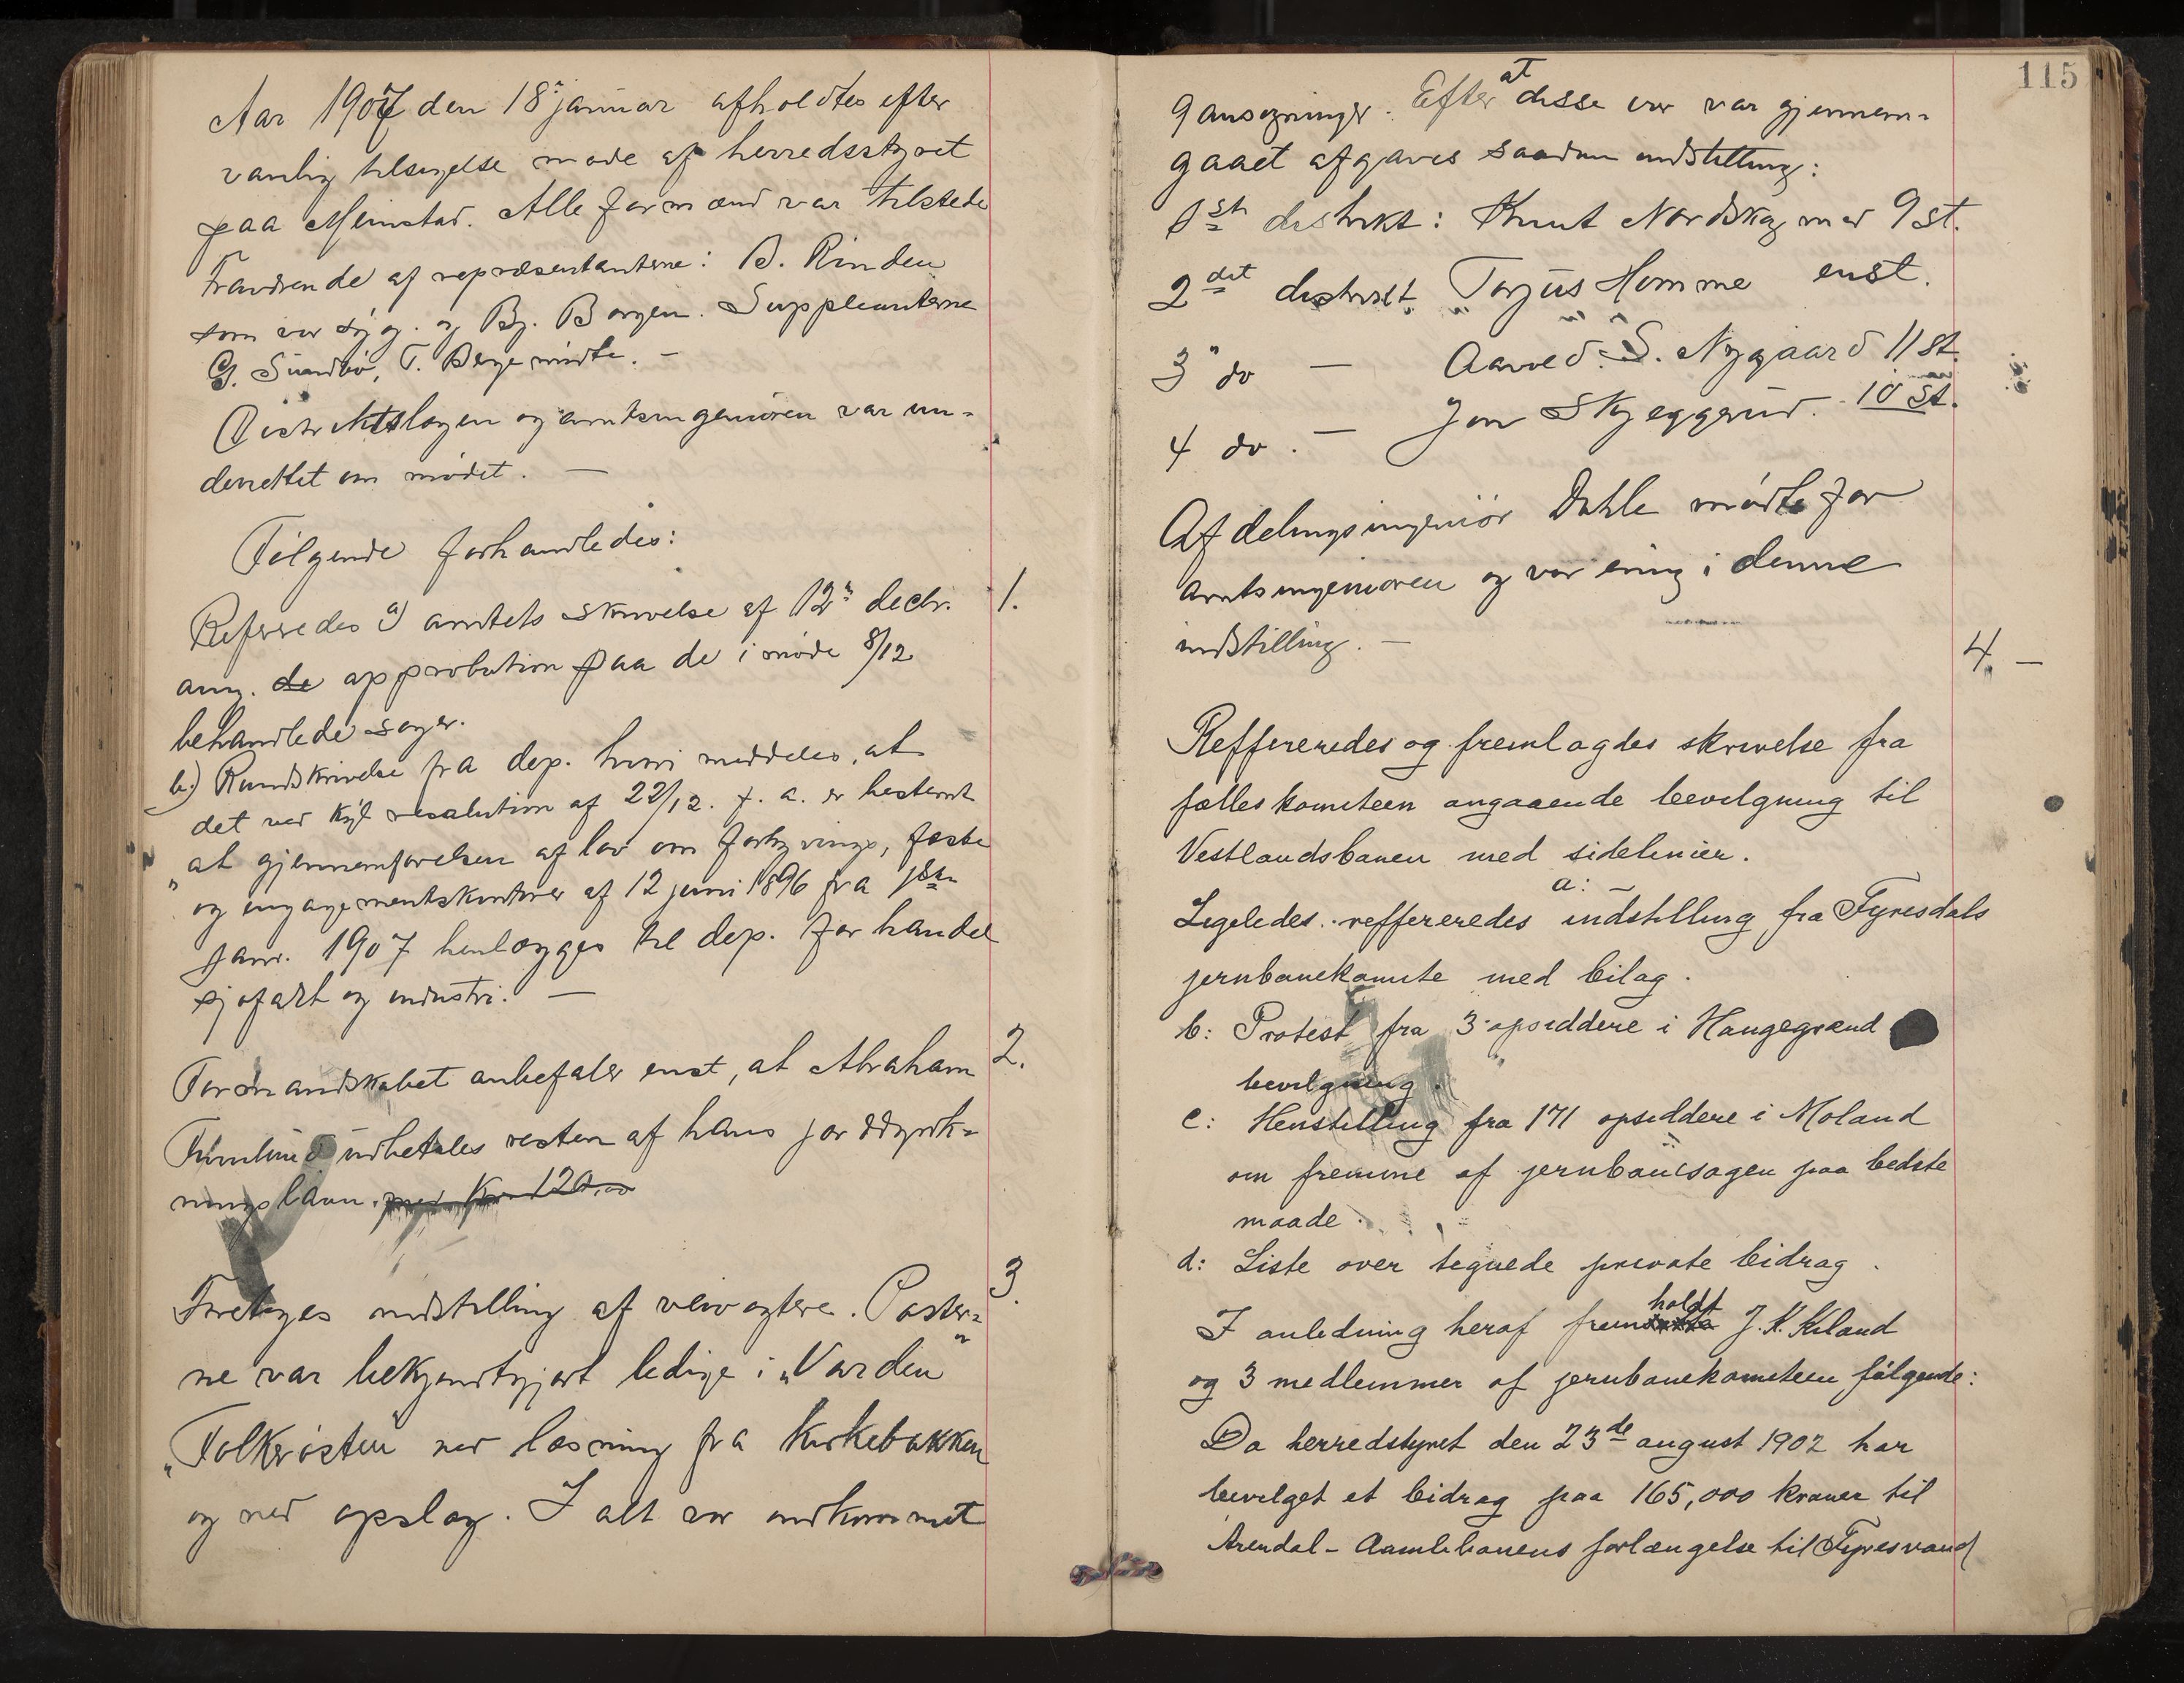 Aar 1907 den 18de januar afholdtes efter
vanlig tilsigelse møde af herredsstyret
paa Meinstad. Alle formænd var tilstede
Fraværende af repræsentanterne: B. Rinden
som var syg. og Bj. Borgen. Suppleanterne
G. Sundbö, T. Berge mödte. —
Distriktslægen og amtsingeniören var un-
derrettet om mödet. —
Fölgende forhandledes:
Referredes a) amtets skrivelse af 12te decbr. 1.
ang. de approbation paa de i möde 8/12
behandlede sager.
b.) Rundskrivelse fra dep. hvori meddeles, at
det ved kgl resolution af 22/12. f. a. er bestemt
„at gjennemførelsen af lov om forhyrings, fæste
og engagementskontorer af 12 juni 1896 fra 1ste
janr. 1907 henlægges til dep. for handel
sjøfart og industri. —
Formandskabet anbefaler enst, at Abraham 2.
udbetales resten af hans jorddyrk-
ningslaan. med Kr. 120,00
Foretoges indstilling af veivogtere. Poster- 3.
ne var bekjendtgjort ledige i „Varden"
„Folkerösten" ved læsning fra Kirkebakken
og ved opslag. I alt var indkommet
115
9 ansøgninger. Efter at disse var var gjennem-
gaaet afgaves saadan indstilling:
1ste distrikt: Knut Nordskog med 9 st.
2det distrikt Torjus Homme enst.
3" do — Aanved S. Nygaard 11 st.
4 do. — Jon Skjeggerud. 10 st.
Afdelingsingeniör Dahle mödte for
amtsingeniøren og var enig i denne
indstilling. —
4. —
Reffereredes og fremlagdes skrivelse fra
fælleskomiteen angaaende bevilgning til
Vestlandsbanen med sidelinier.
a:
Ligeledes reffereredes indstilling fra Fyresdals
jernbanekomite med bilag.
b: Protest fra 3 opsiddere i Haugegrænd
bevilgning.
c: Henstilling fra 171 opsiddere i Moland
om fremme af jernbanesagen paa bedste
maade.
d: Liste over tegnede private bidrag.
holdt
I anledning heraf frem J. K. Kiland
og 3 medlemmer af jernbanekomiteen fölgende:
Da herredstyret den 23de august 1902 har
bevilget et bidrag paa 165,000 kroner til
Arendal - Aamlibanens forlængelse til Fyresvand